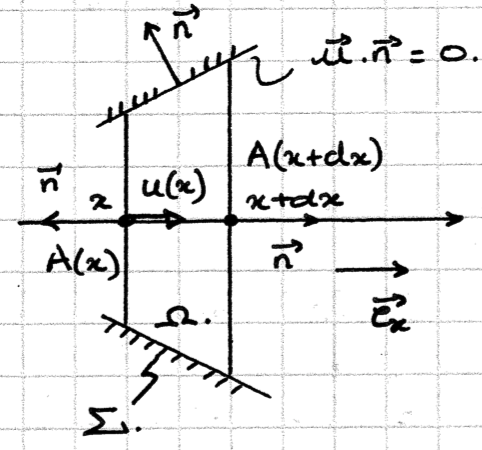 n⃗
u⃗.n⃗ = 0.
A(x+dx)
n⃗
x
u(x)
x+dx
A(x)
n⃗
e⃗ₓ
Ω.
Σ.